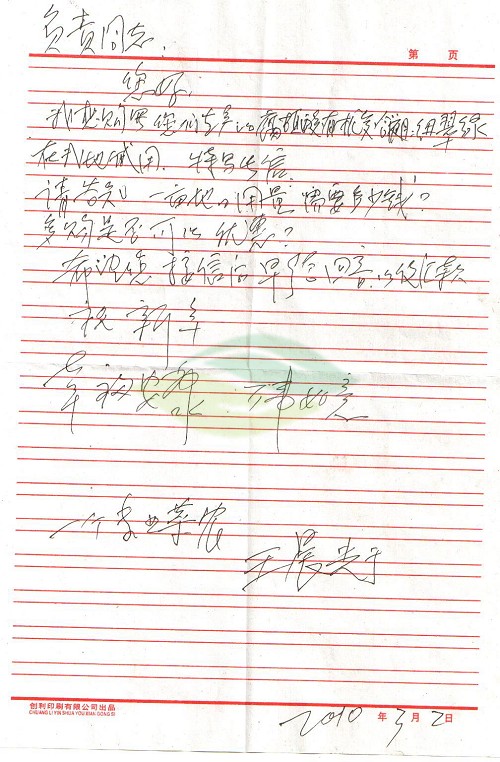 负责同志:
第 页
您好,
我想购买您们生产的腐植酸有机
在我地城用. 特写此信.
请告知 一亩地的用量 需要多少钱?
多购是否可以优惠?
希望您接信后早给回音,以便汇款
祝 新年
幸福安康 万事如意
一个 菜农
王晨光于
创利印刷有限公司出品
CHUANG LI YIN SHUA YOU XIAN GONG SI
2010 年 3 月 2 日